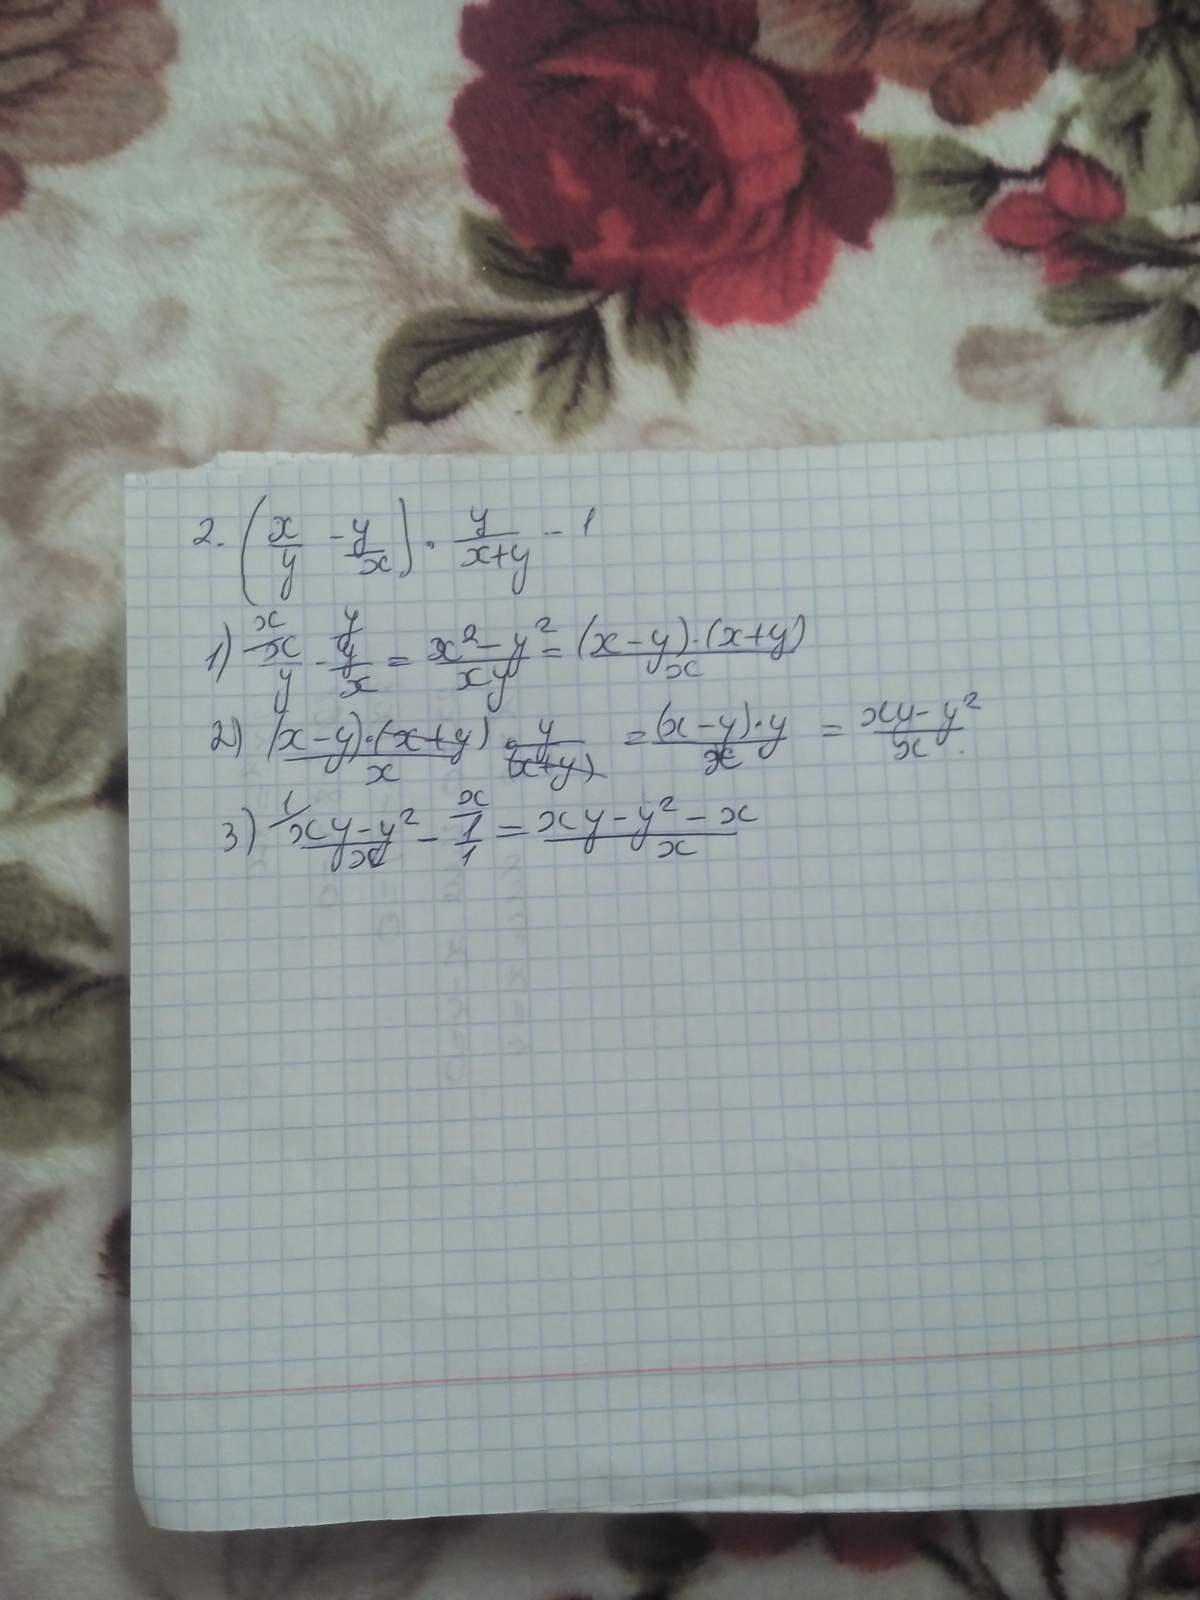 2. (x/y - y/x) · y/(x+y) - 1
1) x/y - y/x = (x² - y²)/xy = (x-y)·(x+y)/x
2) (x-y)·(x+y)/x · y/(x+y) = (x-y)·y/x = (xy-y²)/x
3) (xy-y²)/x - 1/1 = (xy-y²-x)/x